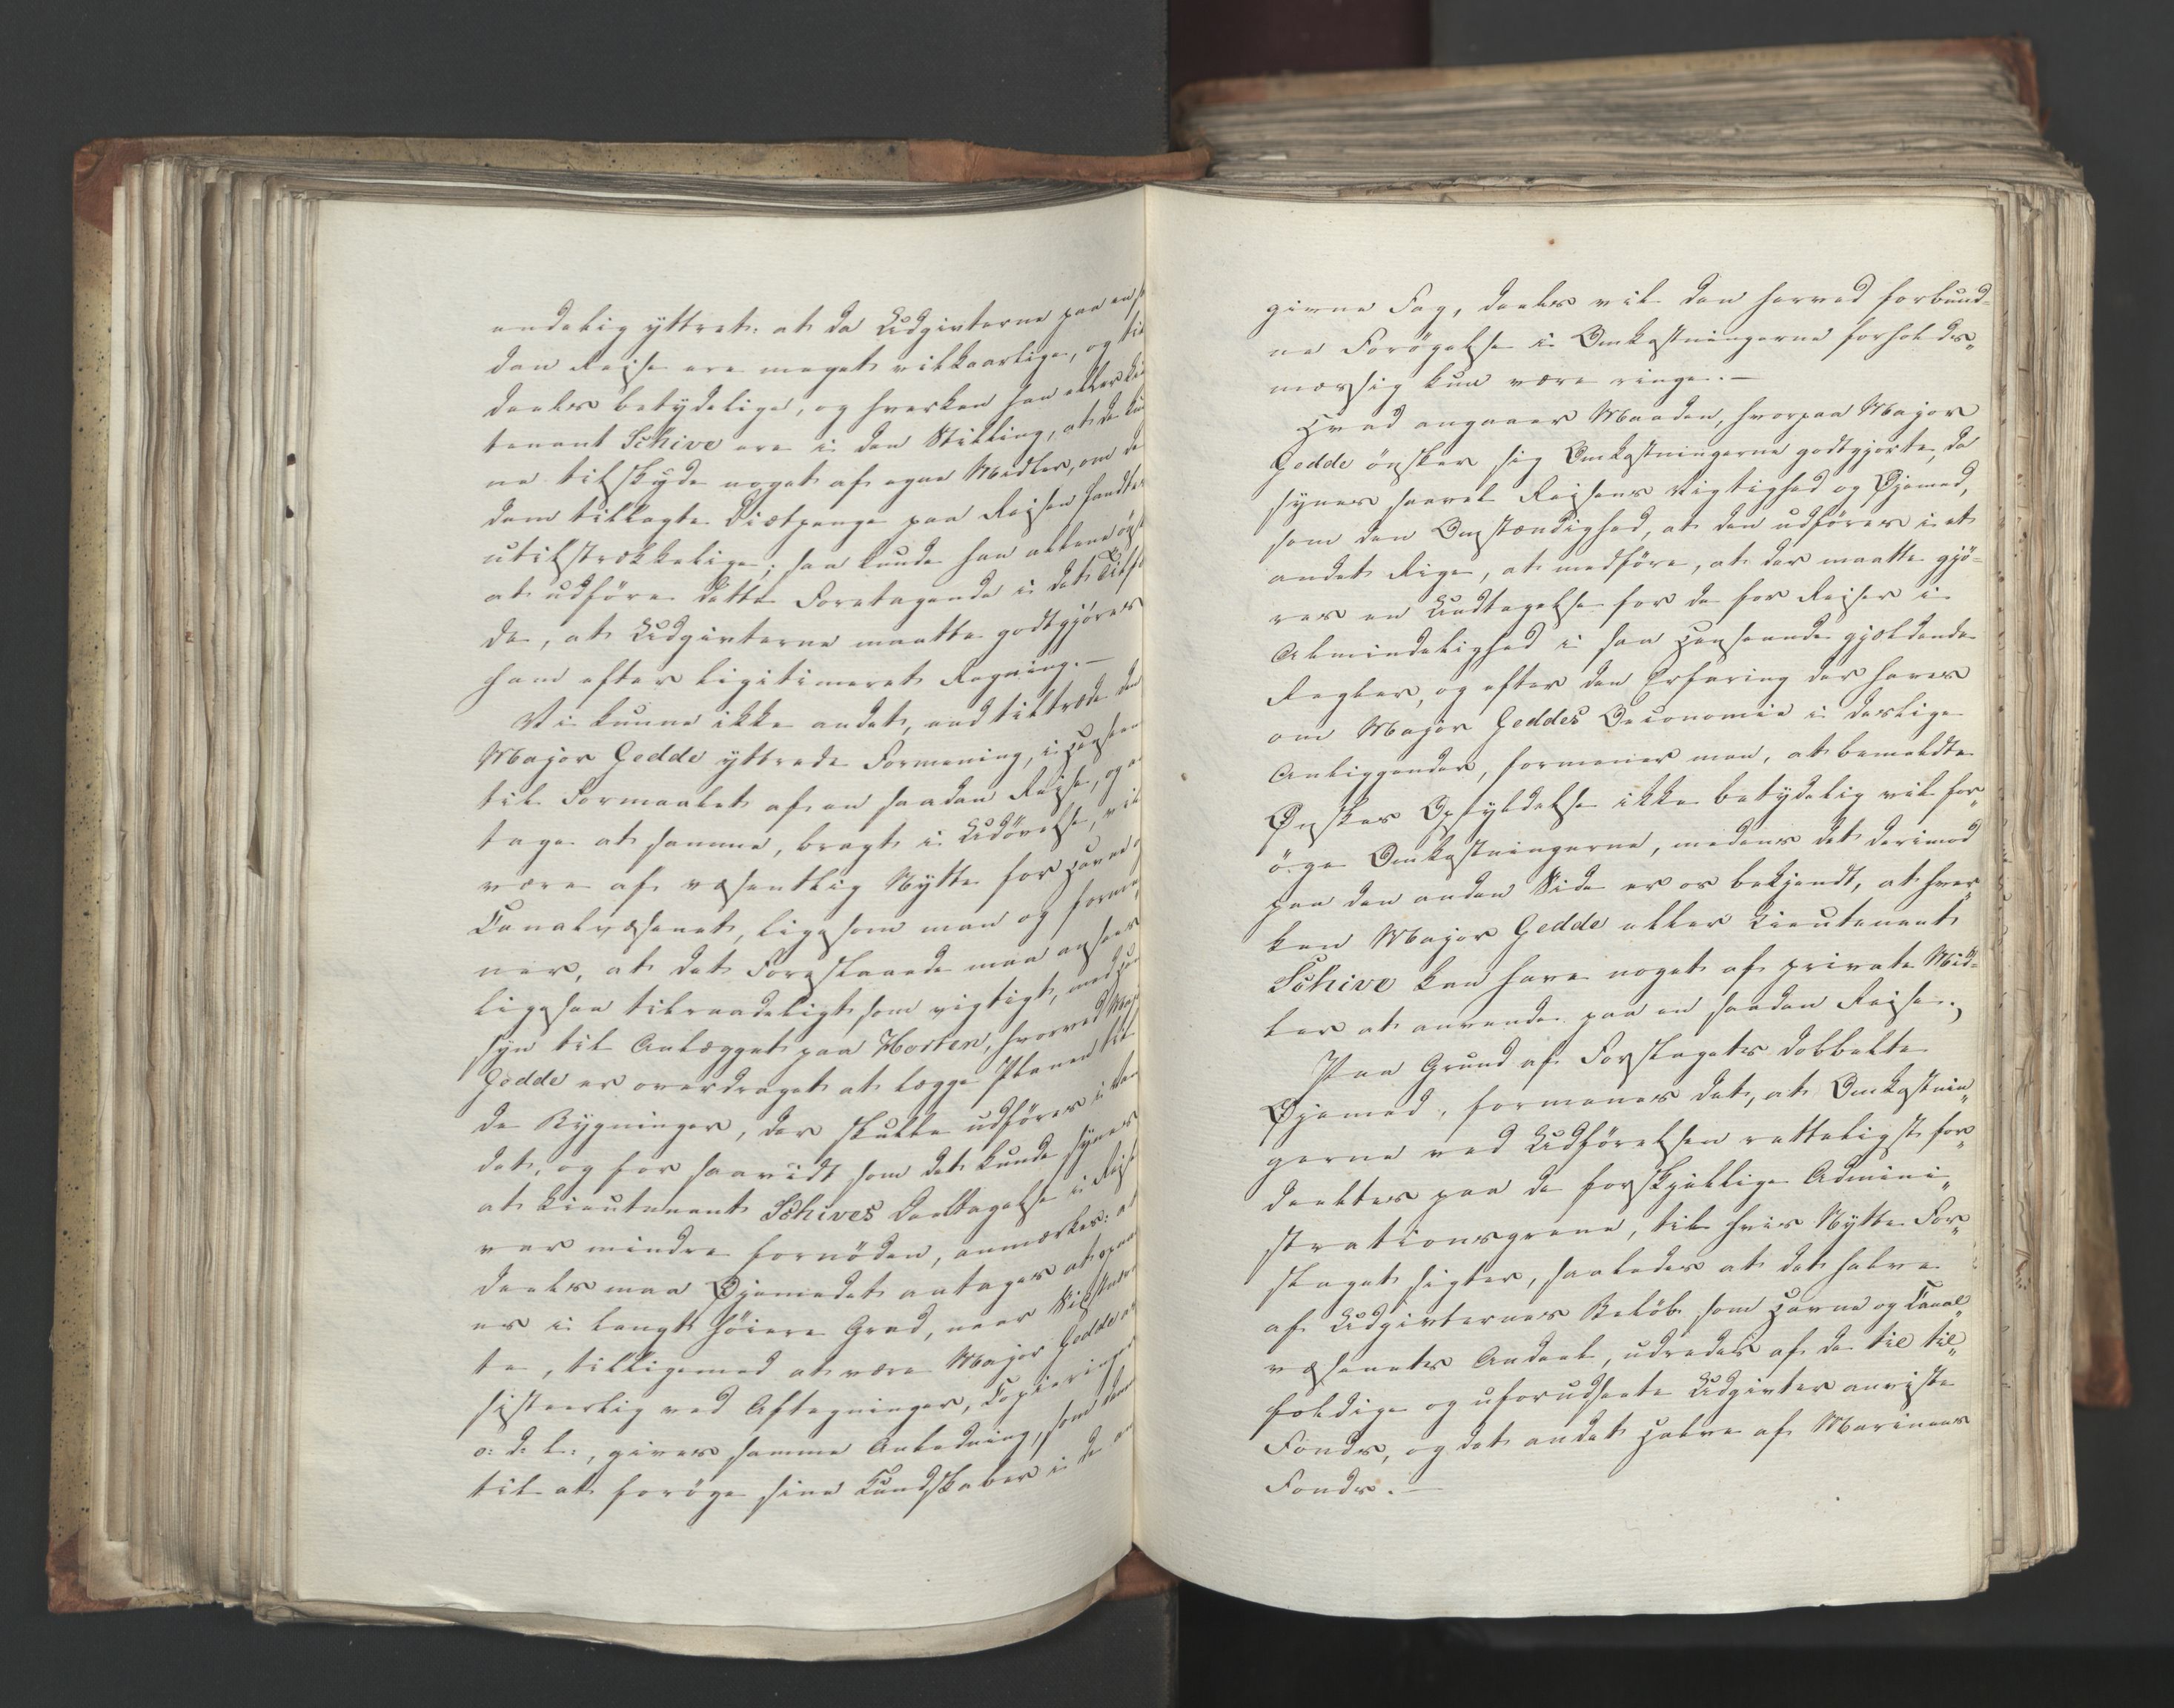 endelig yttret: at da Udgivterne paa en saa
dan Reise ere meget vilkaarlige, og til
deels betydelige, og hverken han eller Lieu
tenant Schive ere i den Stilling, at de kun
ne tilskyde noget af egne Midler, om de
dem tillagte Diætpenge paa Reisen fandtes
utilstrækkelige; saa kunde han allene önske
at udföre dette Foretagende i det Tilfæl
de, at Udgivterne maatte godtgjöres
ham efter ligitimeret Regning.—
Vi kunne ikke andet, end tiltræde den
Major Gedde yttrede Formening, i Henseende
til Formaalet af en saadan Reise, og an
tage at samme, bragt i Udövelse, vil
være af væsentlig Nytte for Havne og
Canalvæsenet, ligesom man og forme
ner, at det Foreslaaede maa ansees
ligesaa tilraadeligt som vigtigt, med Hen
syn til Anlægget paa Horten, hvorved Major
Gedde er overdraget at lægge Planen til
de Bygninger, der skulle udföres i Van
det, og for saavidt som det kunde synes
at Lieutenant Schives Deeltagelse i Reisen
var mindre fornöden, anmærkes: at
deels maa Öjemedet antages at opnaa
es i langt höiere Grad, naar Sidstnævn
te, tilligemed at være Major Gedde as
sisteerlig ved Aftegninger, Copieringer
o: d: l:, gives samme Anledning, som denne
til at foröge sine Kundskaber i de an
givne Fag, deels vil den herved forbund-
ne Forögelse i Omkostningerne forholds„
mæssig kun være ringe.—
Hvad angaaer Maaden, hvorpaa Major
Gedde önsker sig Omkostningerne godtgjorte, da
synes saavel Reisens Vigtighed og Öjemed,
som den Omstændighed, at den udföres i et
andet Rige, at medföre, at der maatte gjö-
res en Undtagelse for de for Reiser i
Almindelighed i saa Henseende gjældende
Regler, og efter den Erfaring der haves
om Major Geddes Oeconomie i deslige
Anliggender, formener man, at bemeldte
Önskes Opfyldelse ikke betydelig vil for„
öge Omkostningerne, medens det derimod
paa den anden Side er os bekjendt, at hver„
ken Major Gedde eller Lieutenant
Schive kan have noget af private Mid-
ler at anvende paa en saadan Reise.
Paa Grund af Forslagets dobbelte
Öjemed, formenes det, at Omkostnin„
gerne ved Udförelsen retteligst for„
deeltes paa de forskjellige Admini„
strationsgrene, til hvis Nytte For„
slaget sigter, saaledes at det halve
af Udgivternes Belöb som Havne og Canal„
væsenets Andeel, udredes af de til til„
fældige og uforudseete Udgivter anviste
Fonds, og det andet Halve af Marinens
Fonds.—